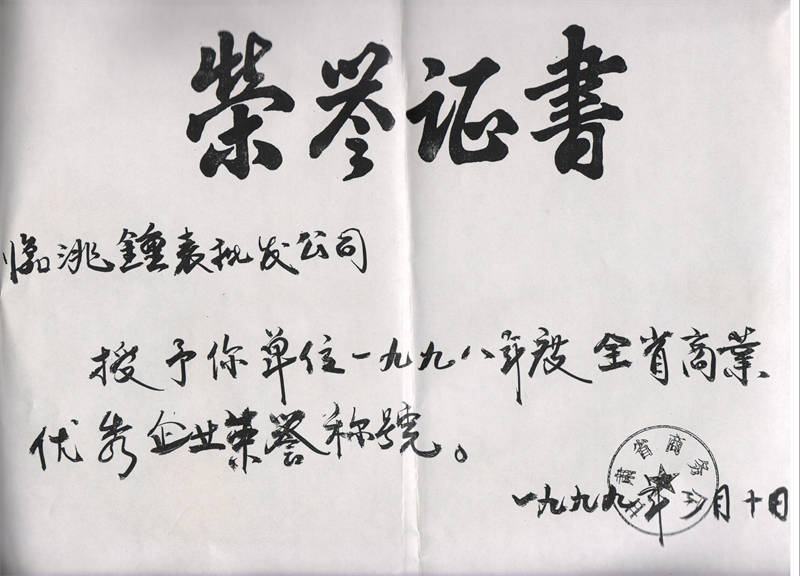 榮誉证書
临洮鍾表批发公司
授予你单位一九九八年度全省商業
优秀企业荣誉称號。
省商务
一九九九年 月十日